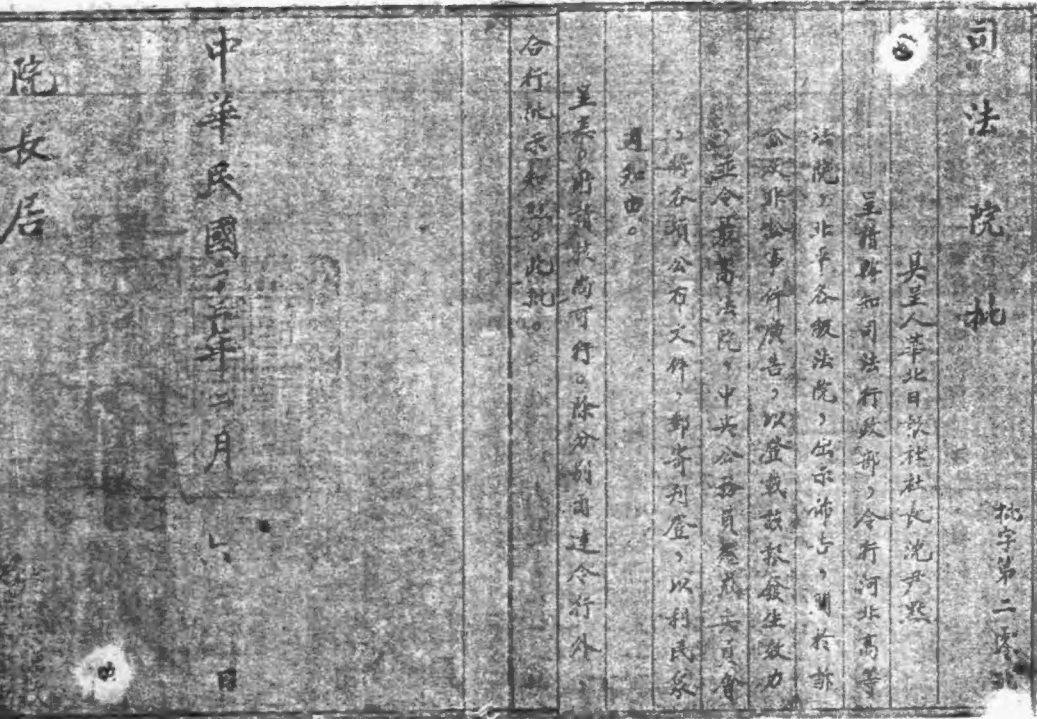 司法院批
批字第二零
具呈人華北日報社社長沈尹默
呈請轉知司法行政部,令行河北高等
法院,北平各級法院,出示佈告,關於訴
訟及非訟事件廣告,以登載該報發生效力
,並令最高法院,中央公務員懲戒委員會
,將各項公布文件,郵寄刊登,以利民眾
週知由。
呈悉,所請核尚可行。除分別函達令行外,
合行批示知照。此批。
中華民國二十五年二月六日
院長居